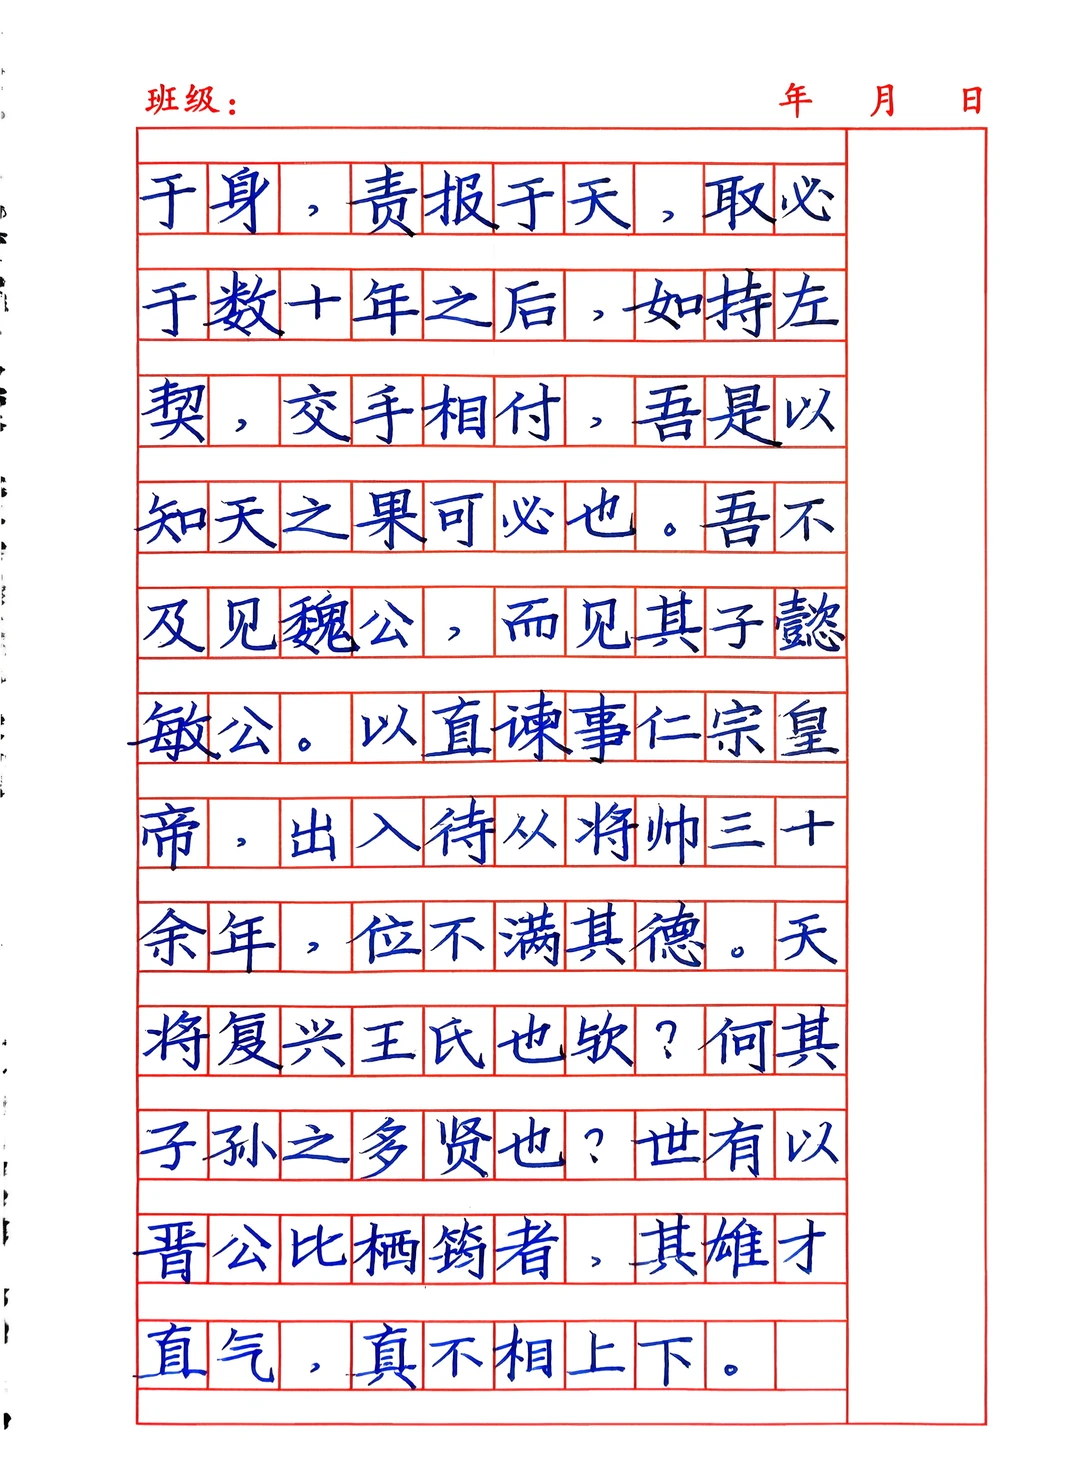 班级： 年 月 日
于身，责报于天，取必
于数十年之后，如持左
契，交手相付，吾是以
知天之果可必也。吾不
及见魏公，而见其子懿
敏公。以直谏事仁宗皇
帝，出入待从将帅三十
余年，位不满其德。天
将复兴王氏也欤？何其
子孙之多贤也？世有以
晋公比栖筠者，其雄才
直气，真不相上下。